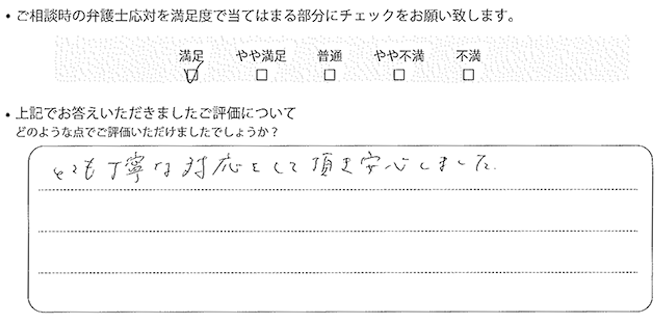 • ご相談時の弁護士応対を満足度で当てはまる部分にチェックをお願い致します。
満足 やや満足 普通 やや不満 不満
☑ □ □ □ □
• 上記でお答えいただきましたご評価について
どのような点でご評価いただけましたでしょうか?
とても丁寧な対応をして頂き安心しました。